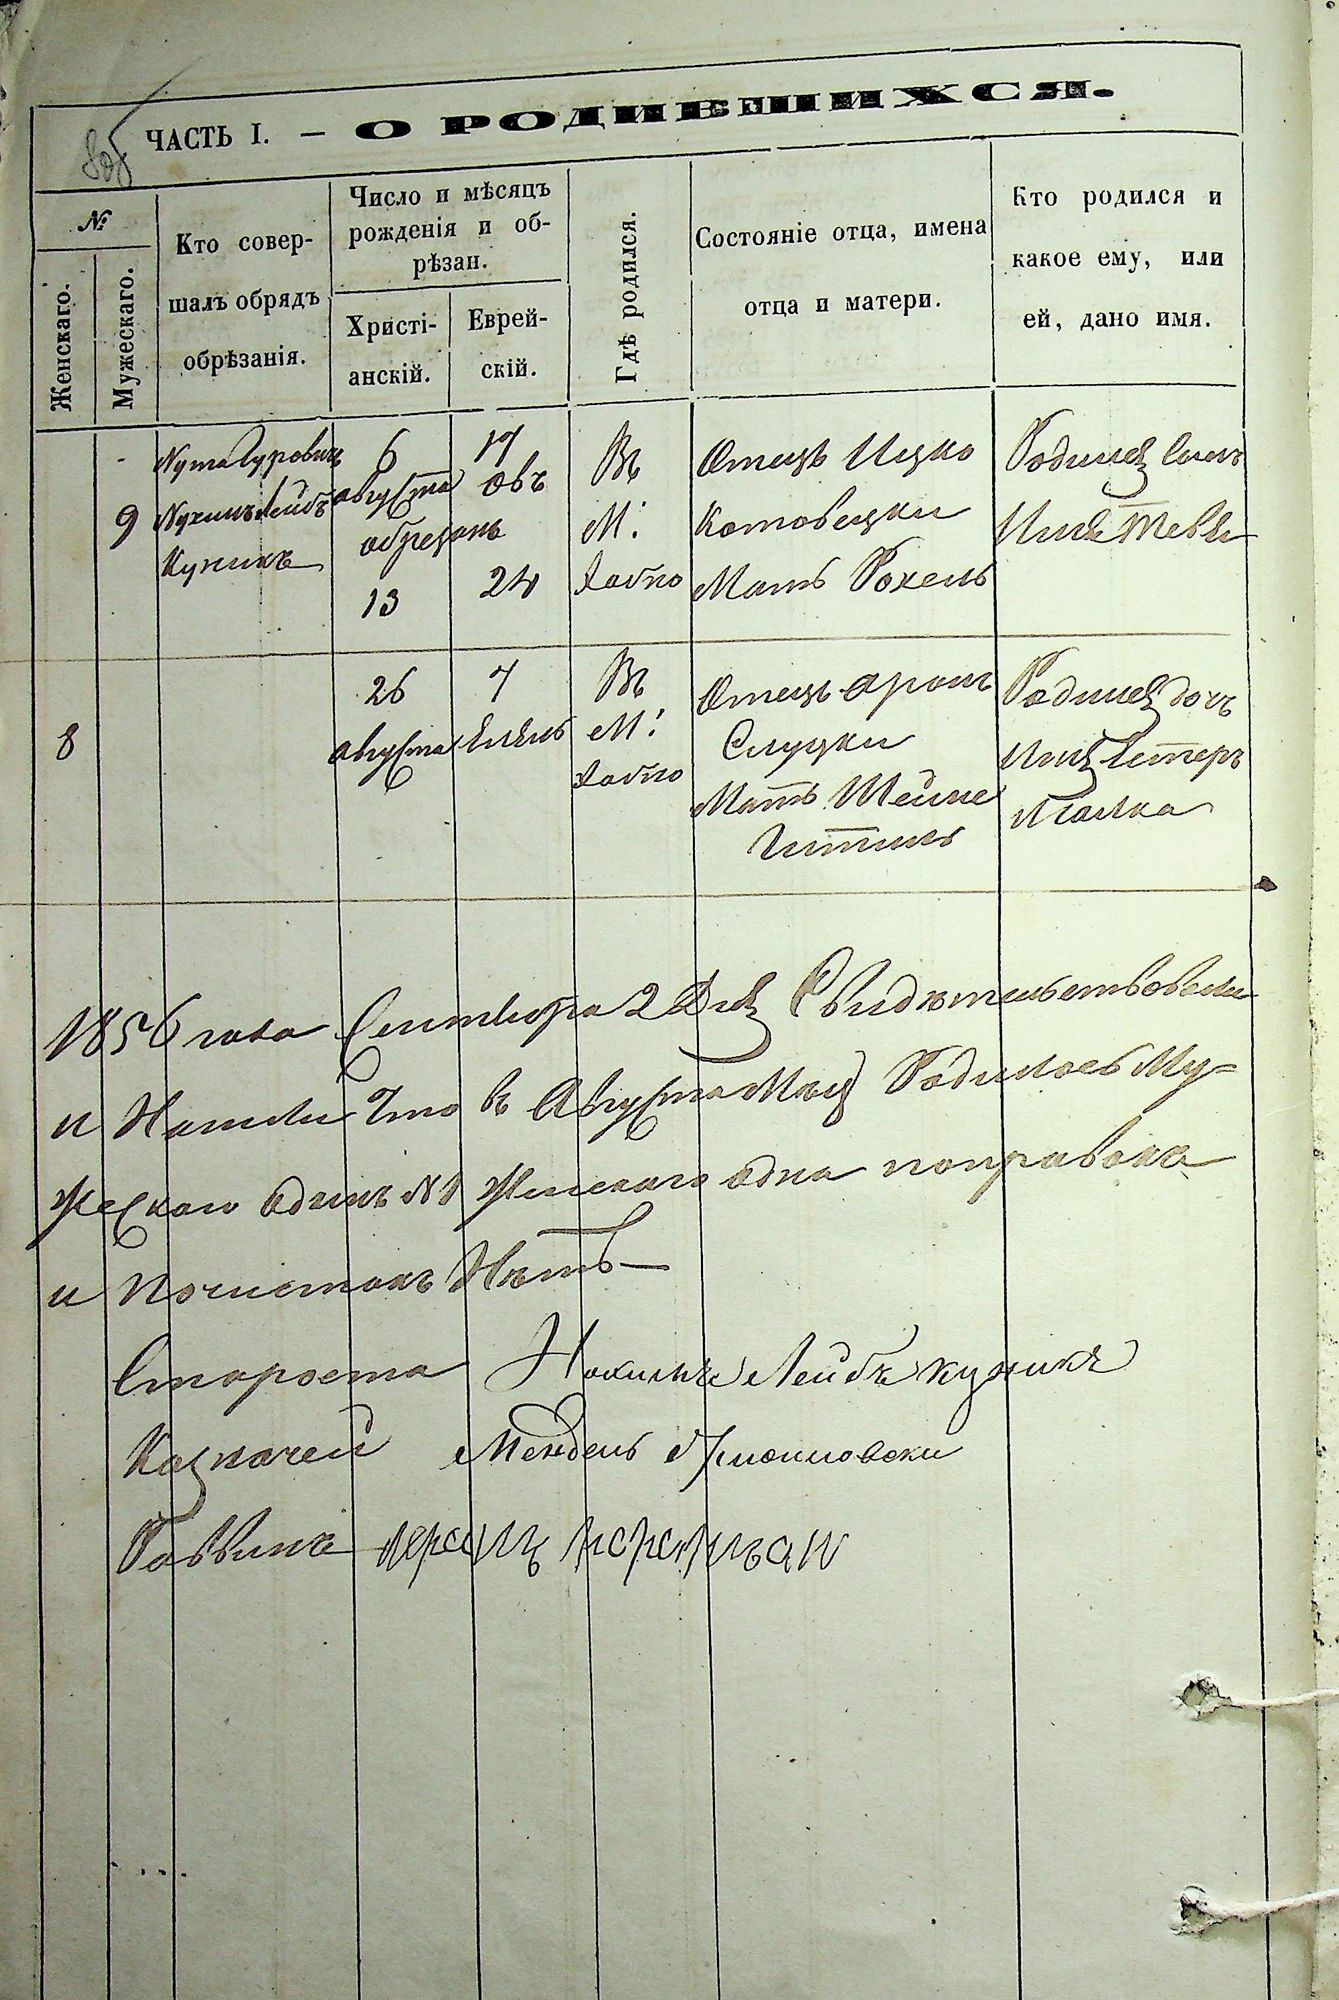 ЧАСТЬ I. — О РОДИВШИХСЯ.
№
Женскаго.
Мужескаго.
Кто совер-
шалъ обрядъ
обрѣзанія.
Число и мѣсяцъ
рожденія и об-
рѣзан.
Христі-
анскій.
Еврей-
скій.
Гдѣ родился.
Состояніе отца, имена
отца и матери.
Кто родился и
какое ему, или
ей, дано имя.
9
Нута Гурович
Нухимъ Лейбъ
Куникъ
6
августа
обрезанъ
13
17
Овъ
24
В
М:
Хабно
Отецъ Ицко
Котовецки
Мать Рохель
Родился Сынъ
Имя Тевъе
8
26
августа
7
Елѣль
В
М:
Хабно
Отецъ Аронъ
Слуцки
Мать Шейне
Гитель
Родилась дочь
Имя Естеръ
Малка
1856 года Сентября 2 Дня Свидѣтельствовали
и Нашли Что в Августа Мца Родилось Му-
жескаго Одинъ Женскаго одна поправокъ
и почистокъ Нѣтъ
Староста Нохимъ Лейбъ Куникъ
Казначей Мендель
Раввинъ